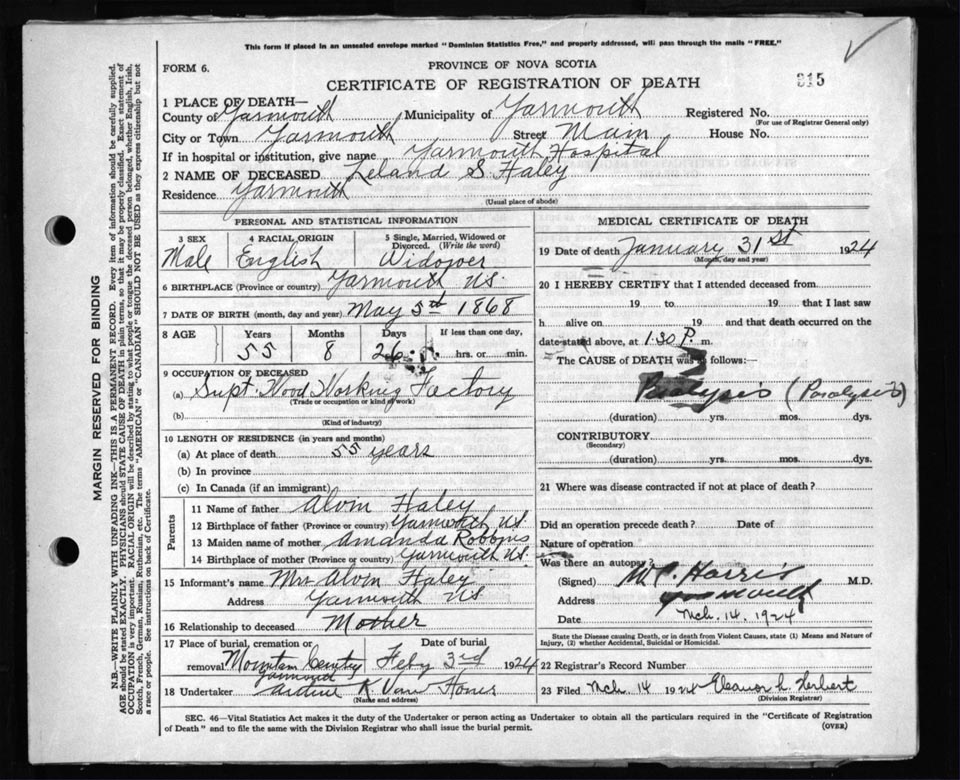 This form if placed in an unsealed envelope marked "Dominion Statistics Free," and properly addressed, will pass through the mails "FREE."
FORM 6.
PROVINCE OF NOVA SCOTIA
CERTIFICATE OF REGISTRATION OF DEATH
915
1 PLACE OF DEATH—
County of Yarmouth Municipality of Yarmouth Registered No.
(For use of Registrar General only)
City or Town Yarmouth Street Main House No.
If in hospital or institution, give name Yarmouth Hospital
2 NAME OF DECEASED Leland S Haley
Residence Yarmouth
(Usual place of abode)
PERSONAL AND STATISTICAL INFORMATION
3 SEX 4 RACIAL ORIGIN 5 Single, Married, Widowed or Divorced. (Write the word)
Male English Widower
6 BIRTHPLACE (Province or country) Yarmouth NS.
7 DATE OF BIRTH (month, day and year) May 5th 1868
8 AGE Years Months Days If less than one day,
55 8 26 hrs. or min.
9 OCCUPATION OF DECEASED
(a) Supt. Wood Working Factory
(Trade or occupation or kind of work)
(b)
(Kind of industry)
10 LENGTH OF RESIDENCE (in years and months)
(a) At place of death 55 years
(b) In province
(c) In Canada (if an immigrant)
Parents
11 Name of father Alvin Haley
12 Birthplace of father (Province or country) Yarmouth NS.
13 Maiden name of mother Amanda Robbins
14 Birthplace of mother (Province or country) Yarmouth NS.
15 Informant's name Mrs Alvin Haley
Address Yarmouth NS
16 Relationship to deceased Mother
17 Place of burial, cremation or removal Mountain Cemtry Yarmouth Date of burial Feby 3rd 1924
18 Undertaker K Van Horne
(Name and address)
MEDICAL CERTIFICATE OF DEATH
19 Date of death January 31st 1924
(Month, day and year)
20 I HEREBY CERTIFY that I attended deceased from
19 to 19 that I last saw
h alive on 19 and that death occurred on the
date stated above, at 1.30 P. m.
The CAUSE of DEATH was as follows:—
Paralysis (Paralysis)
(duration) yrs. mos. dys.
CONTRIBUTORY
(Secondary)
(duration) yrs. mos. dys.
21 Where was disease contracted if not at place of death?
Did an operation precede death? Date of
Nature of operation
Was there an autopsy?
(Signed) M.C. Harris M.D.
Address Yarmouth
Date Mch. 14. 1924
State the Disease causing Death, or in death from Violent Causes, state (1) Means and Nature of
Injury, (2) whether Accidental, Suicidal or Homicidal.
22 Registrar's Record Number
23 Filed Mch 14 1924 Eleanor L Herbert
(Division Registrar)
SEC. 46—Vital Statistics Act makes it the duty of the Undertaker or person acting as Undertaker to obtain all the particulars required in the "Certificate of Registration
of Death" and to file the same with the Division Registrar who shall issue the burial permit.
(OVER)
MARGIN RESERVED FOR BINDING
N.B.—WRITE PLAINLY WITH UNFADING INK—THIS IS A PERMANENT RECORD. Every item of information should be carefully supplied.
AGE should be stated EXACTLY. PHYSICIANS should STATE CAUSE OF DEATH in plain terms, so that it may be properly classified. Exact statement of
OCCUPATION is very important. RACIAL ORIGIN will be described by stating to what people or tongue the deceased person belonged, whether English, Irish,
Scotch, French, German, Russian, Ruthenian, etc. The terms "AMERICAN" or "CANADIAN" SHOULD NOT BE USED as they express citizenship but not
a race or people. See instructions on back of Certificate.